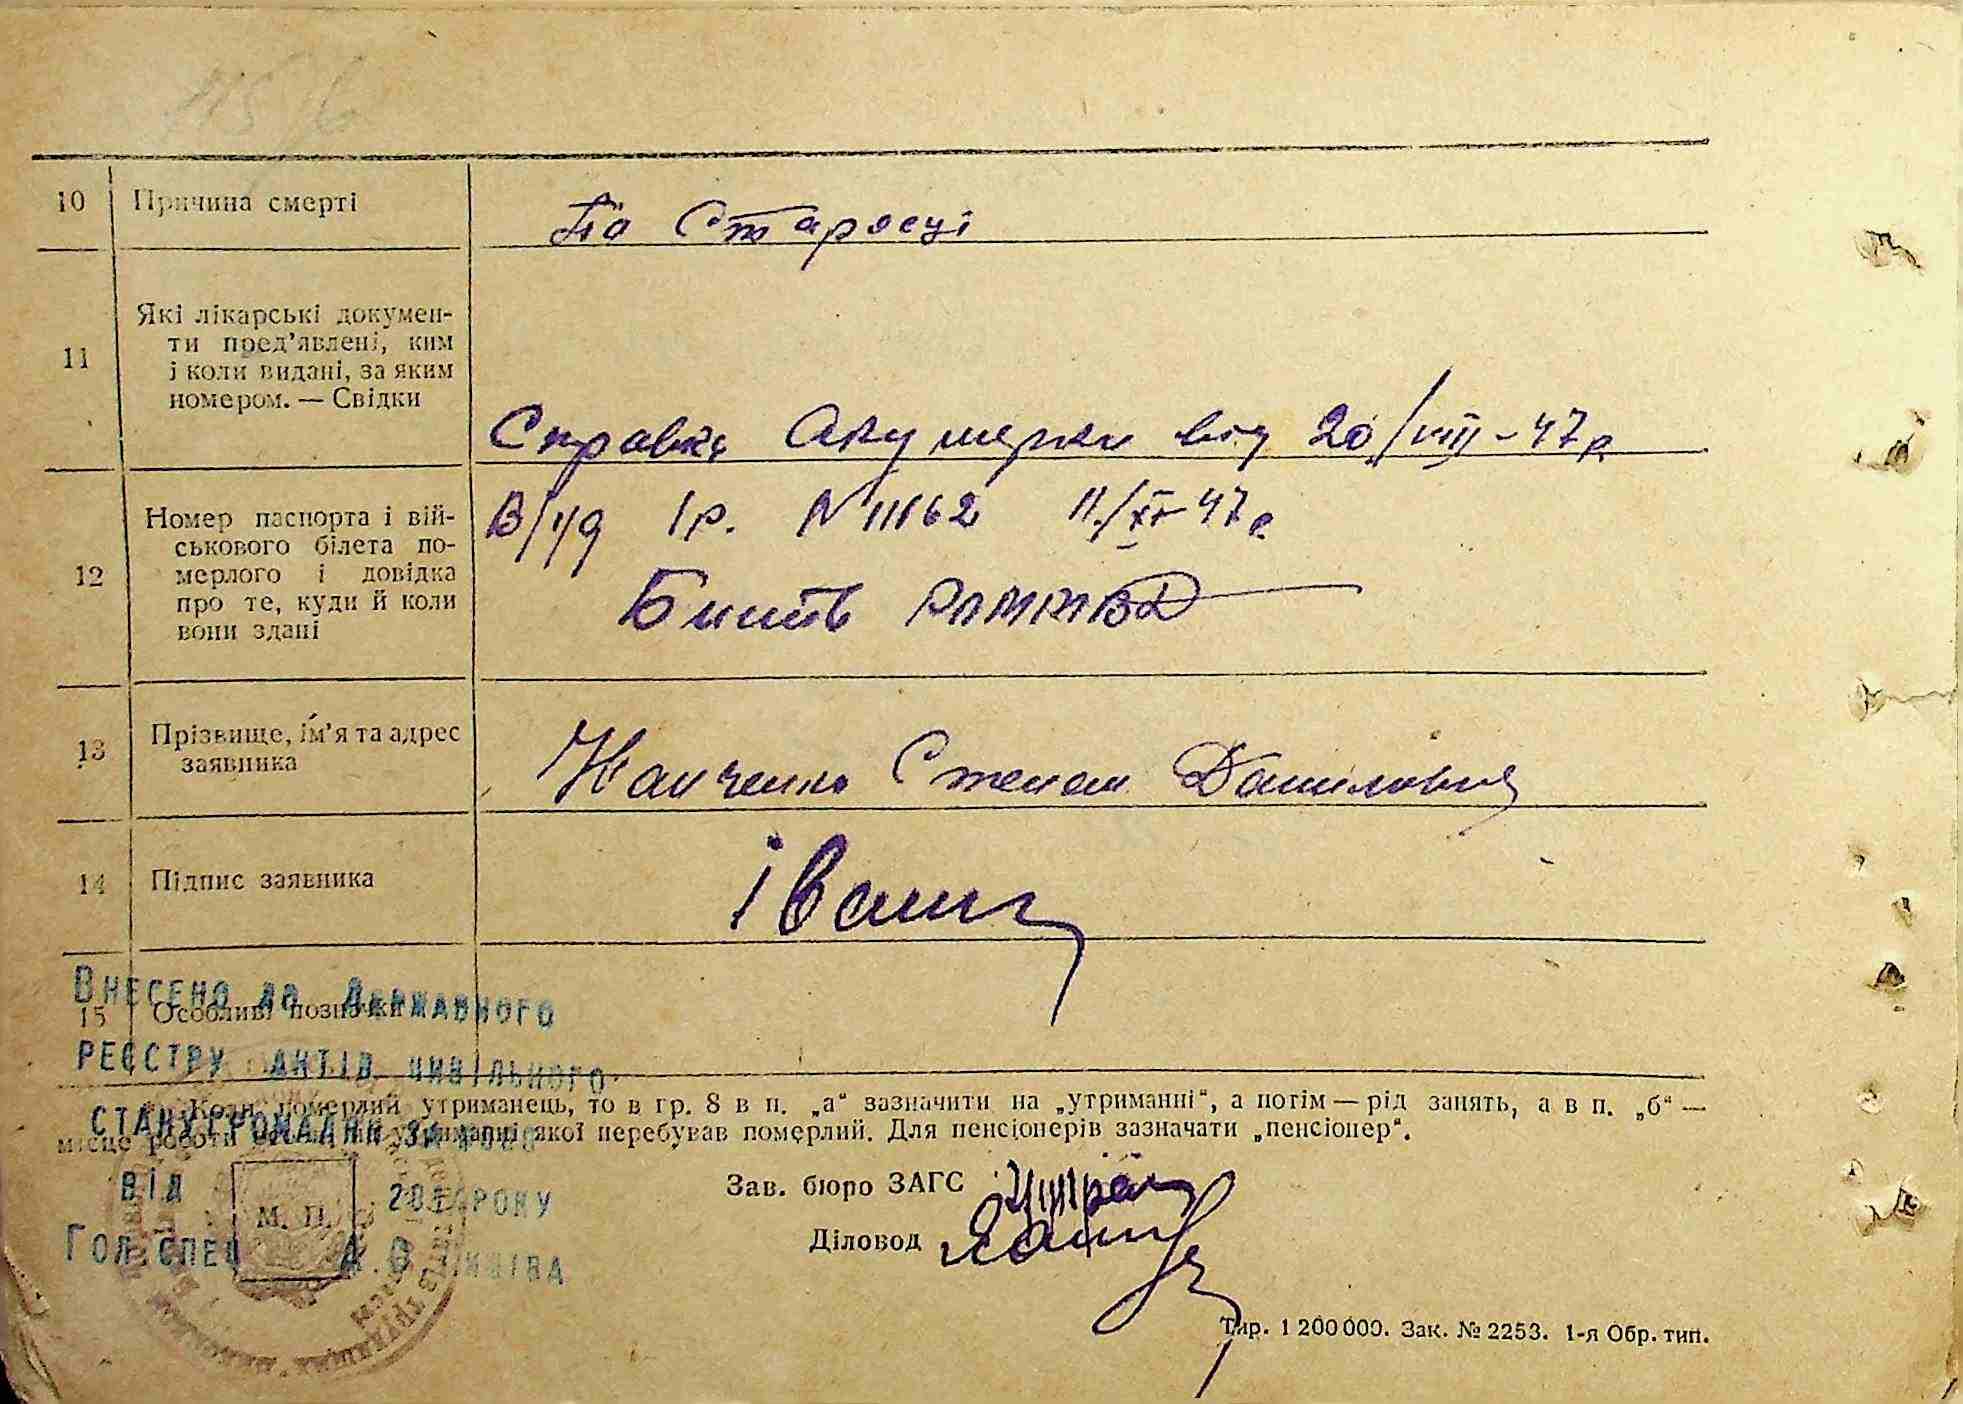 115/6
10 Причина смерті По Старосці
11 Які лікарські докумен-
ти пред'явлені, ким
і коли видані, за яким
номером. — Свідки
Справка Акушерки від 20/VIII-47р
12 Номер паспорта і вій-
ськового білета по-
мерлого і довідка
про те, куди й коли
вони здані
Ір. № 11162 11/XI-47р
13 Прізвище, ім'я та адрес
заявника
Степан Данилович
14 Підпис заявника
15 Особливі позначки
Внесено до Державного
реєстру актів цивільного
стану громадян за
від 20 року
Гол.спец
Коли померлий утриманець, то в гр. 8 в п. „а“ зазначити на „утриманні“, а потім — рід занять, а в п. „б“ —
місце роботи особи, на утриманні якої перебував померлий. Для пенсіонерів зазначати „пенсіонер“.
М. П.
Зав. бюро ЗАГС
Діловод
Тир. 1 200 000. Зак. № 2253. 1-я Обр. тип.